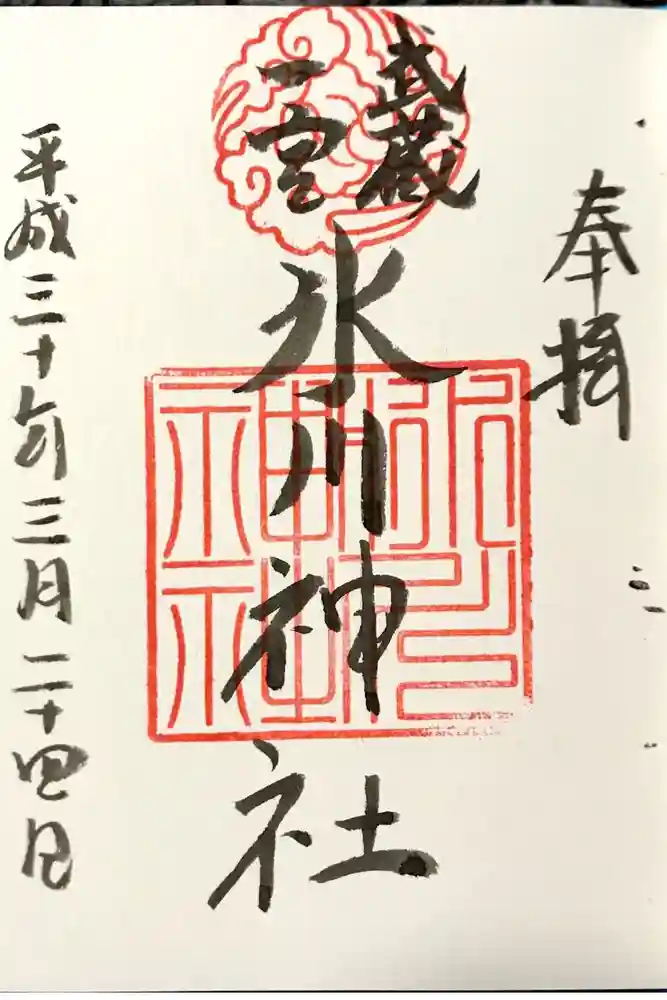 奉拝
武蔵
一宮
氷川神社
平成三十年三月二十四日